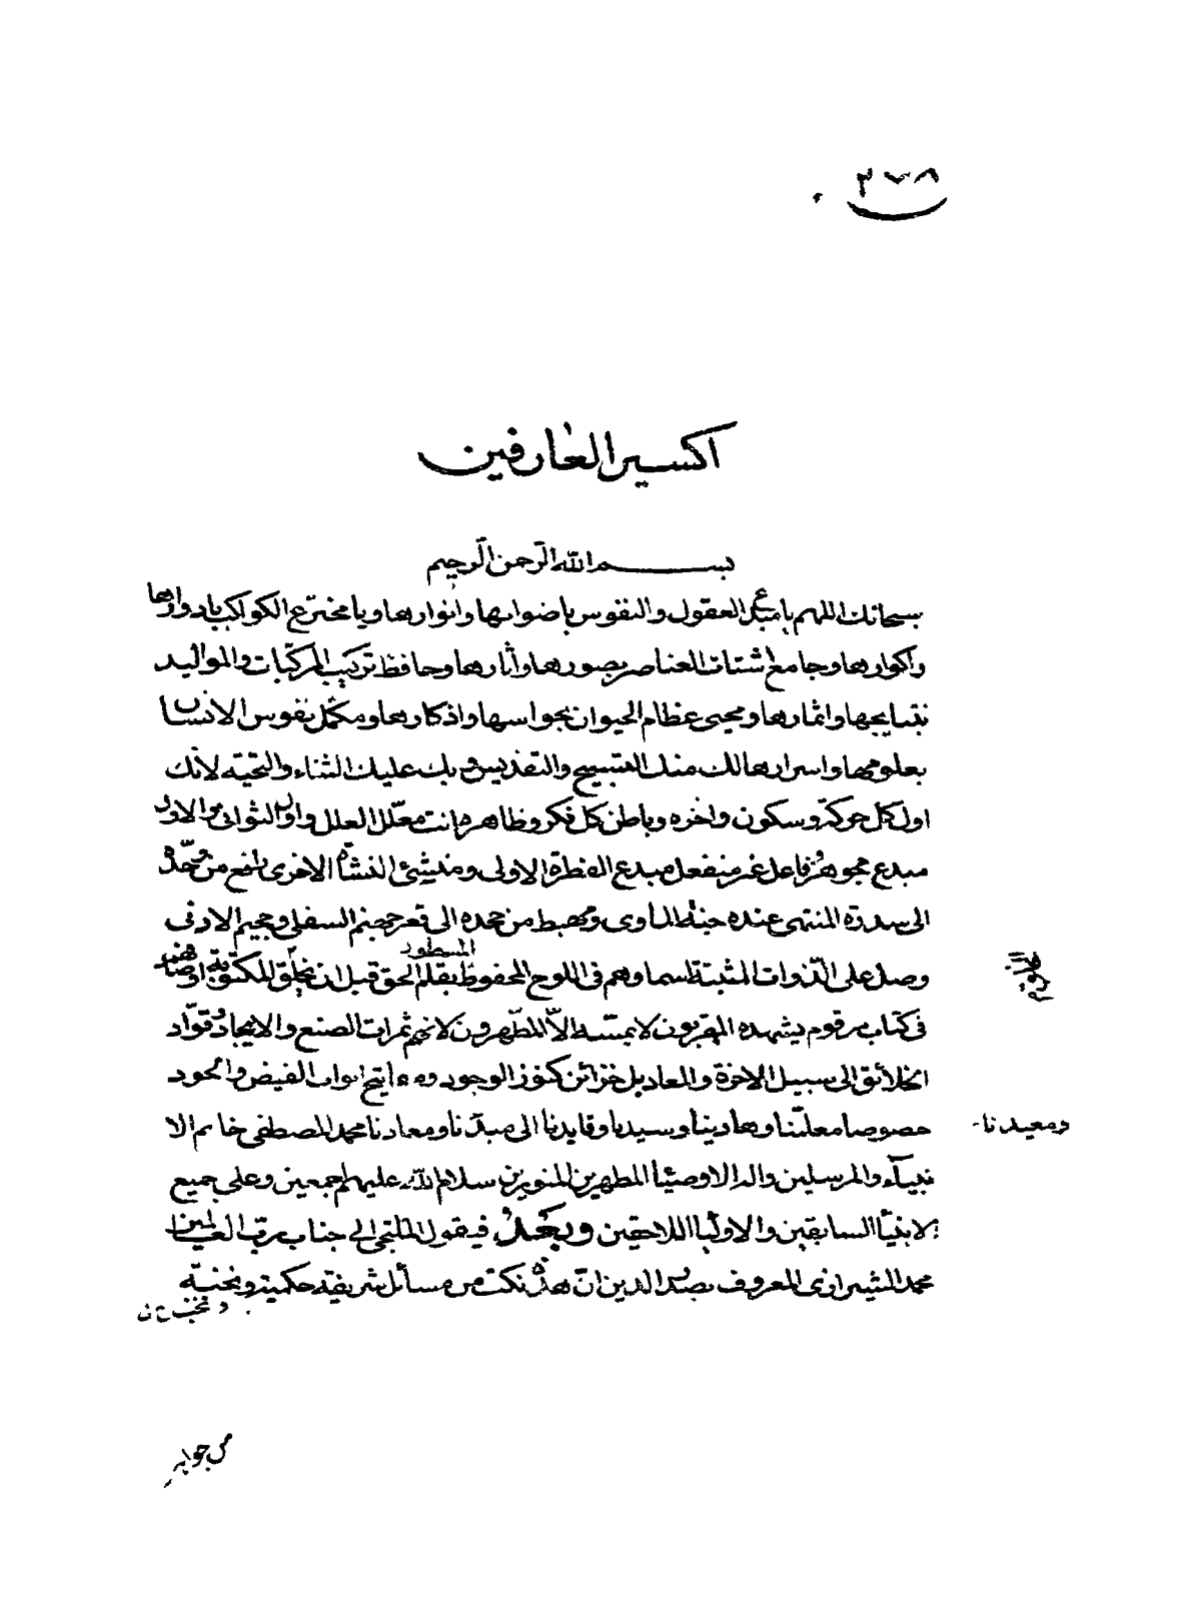 ٢٧٨
اكسير العارفين
بسم الله الرحمن الرحيم
سبحانك اللهم يا مبدع العقول والنفوس باضوائها وانوارها ويا مخترع الكواكب بادوارها
واكوارها وجامع اشتات العناصر بصورها وآثارها وحافظ تركيب المركبات والمواليد
بنتايجها واثمارها ومحيى عظام الحيوان بحواسها واذكارها ومكمّل نفوس الانسان
بعلومها واسرارها لك منك التسبيح والتقديس وبك عليك الثناء والتحيّة لانّك
اول كل حركة وسكون واخره وباطن كل فكر وظاهره انت معلّل العلل واول الثوانى والاول
مبدع بجوهره فاعل غير منفعل مبدع الفطرة الاولى ومنشئ النشأة الاخرى رافع من وحّده
الى سدرة المنتهى عنده جنة الماوى ومهبط من جحده الى قعر جهنم السفلى وجحيم الادنى
وصل على الذوات المثبتة اسماؤهم فى اللوح المحفوظ بقلم الحق قبل ان يخلق المكتوبة اوصافهم
المسطور
فى كتاب مرقوم يشهده المقربون لا يمسّه الاّ المطّهرون لانهم ثمرات الصنع والايجاد وقوّاد
الخلائق الى سبيل الاخرة والمعاد بل خزائن كنوز الوجود ومفاتيح ابواب الفيض والجود
خصوصا معلّمنا وهادينا وسيدنا وقايدنا الى مبدئنا ومعادنا محمد المصطفى خاتم الا
ومعيدنا
نبيآء والمرسلين واله الاوصيا المطهرين المنورين سلام الله عليهم اجمعين وعلى جميع
الانبيا السابقين والاوليا اللاحقين وبعد فيقول الملتجى الى جناب رب العالمين
محمد الشيرازى المعروف بصدر الدين انّ هذه نكت من مسائل شريفة حكمية ونخبة